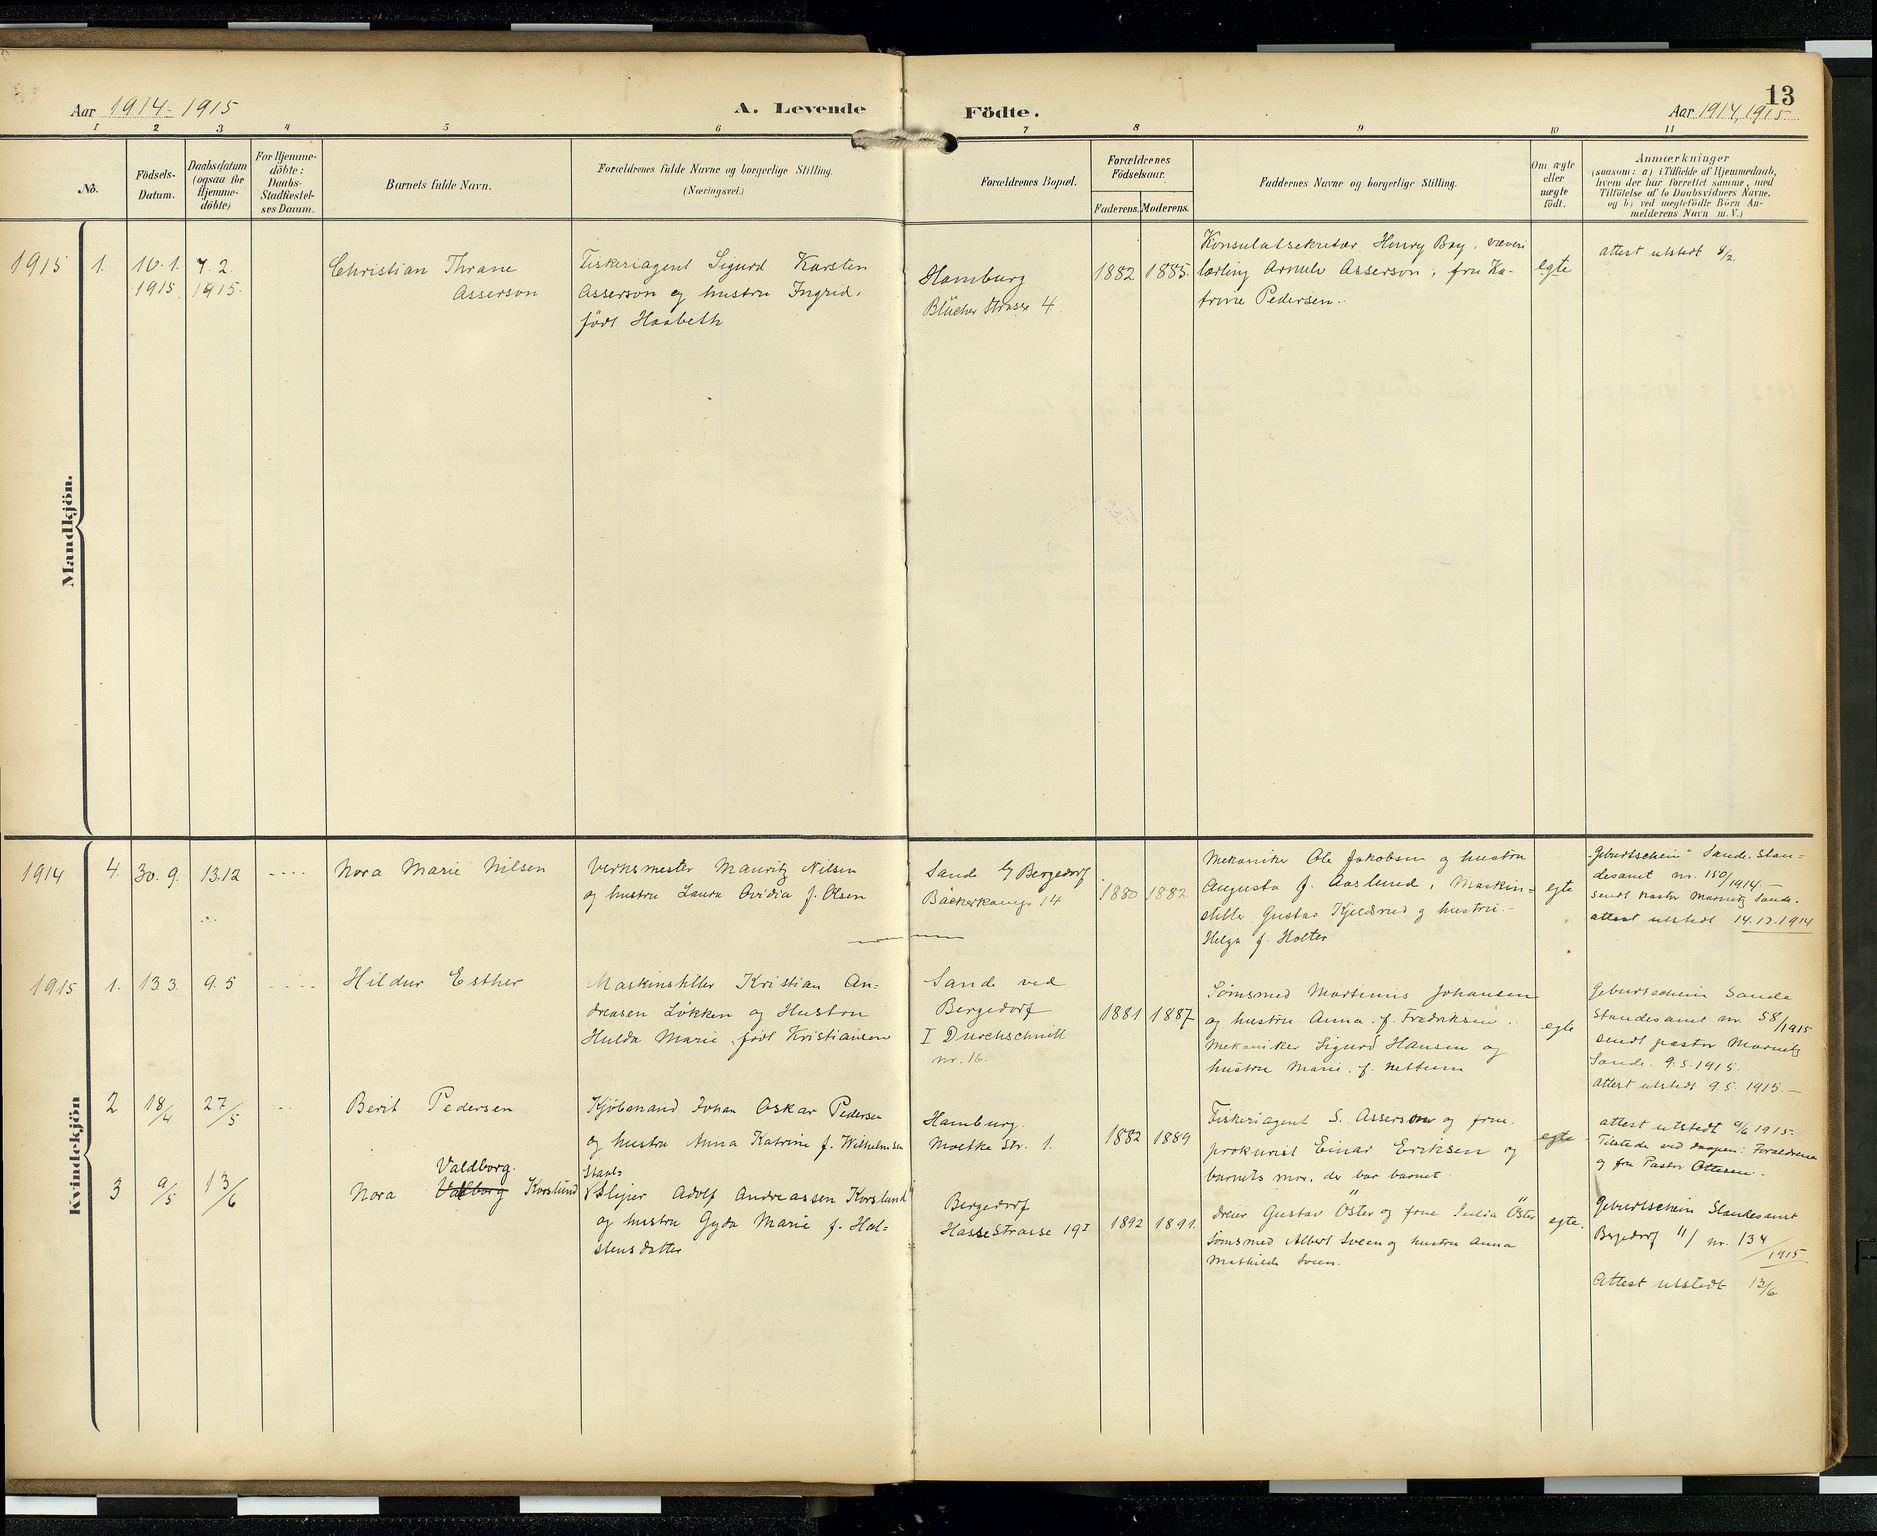 13
Aar 1914-1915
A. Levende
Födte.
Aar 1914, 1915
1 2 3 4 5 6 7 8 9 10 11
No.
Födsels-
Datum.
Daabsdatum
(ogsaa for
Hjemme-
döbte)
For Hjemme-
döbte:
Daabs-
Stadfæstel-
ses Datum.
Barnets fulde Navn.
Forældrenes fulde Navne og borgerlige Stilling.
(Næringsvei.)
Forældrenes Bopæl.
Forældrenes
Födselsaar.
Faderens. Moderens.
Faddernes Navne og borgerlige Stilling.
Om ægte
eller
uægte
födt.
Anmærkninger
(saasom: a) i Tilfælde af Hjemmedaab,
hvem der har forrettet samme, med
Tilföielse af to Daabsvidners Navne,
og b) ved uægtefödte Börn An-
melderens Navn m. V.)
Mandkjön.
1915 1. 10.1.
1915.
7.2.
1915.
Christian Thrane
Asserson
Fiskeriagent Sigurd Karsten
Asserson og hustru Ingrid,
født Haabeth
Hamburg
Blücher Strasse 4.
1882 1885.
Konsulatsekretær Henry Bay, væveri
lærling Arnulv Asserson, fru Ka-
trine Pedersen.
egte
attest utstedt 8/2.
Kvindekjön
1914 4. 30.9. 13.12 ----
Nora Marie Nilsen
Verksmester Mauritz Nilsen
og hustru Laura Ovidia f. Olsen
Sande b/ Bergedorf
Bäckerkamp 14
1880 1882
Mekaniker Ole Jakobsen og hustru
Augusta f. Aaslund, Maskin-
stiller Gustav Kjeldsrud og hustru
Helga f. Holter
egte
"Geburtschein" Sande. Stan-
desamt nr. 150/1914.
sendt Pastor Marnitz Sande.
attest utstedt 14.12.1914
1915 1. 13.3. 9.5 ----
Hildur Esther
Maskinstiller Kristian An-
dreasen Løkken og Hustru
Hulda Marie, født Kristiansen
Sande ved
Bergedorf
I Durchschnitt
nr. 16.
1881 1887
Sømsmed Martinius Johansen
og hustru Anna f. Fredriksen.
Mekaniker Sigurd Hansen og
hustru Marie. f. Nettum
egte
Geburtschein Sande
Standesamt nr. 58/1915
sendt pastor Marnitz
Sande. 9.5.1915.
attest utstedt 9.5.1915.-
2 18/4 27/5 --
Berit Pedersen
Kjøbmand Johan Oskar Pedersen
og hustru Anna Katrine f. Wilhelmsen
Hamburg.
Moltke Str. 1.
1882 1889
Fiskeriagent S. Asserson og frue.
prokurist Einar Eriksen og
barnets mor, der bar barnet.
egte
attest utstedt 9/6 1915.
Tilstede ved daapen: Foraldrene
og fru Pastor Ottesen.-
3 9/5 13/6
Valdborg.
Nora Valborg Korslund
Staal-
Sliper Adolf Andreassen Korslund
og hustru Gyda Marie f. Hal-
stensdatter
Bergedorf
Hassestrasse 19 I
1892 1891.
Dreier Gustav Öster og frue Julia Öster
Sømsmed Albert Sveen og hustru Anna
Mathilde Sveen.
egte.
Geburtschein Standesamt
Bergedorf II/ nr. 134/1915
Attest utstedt 13/6